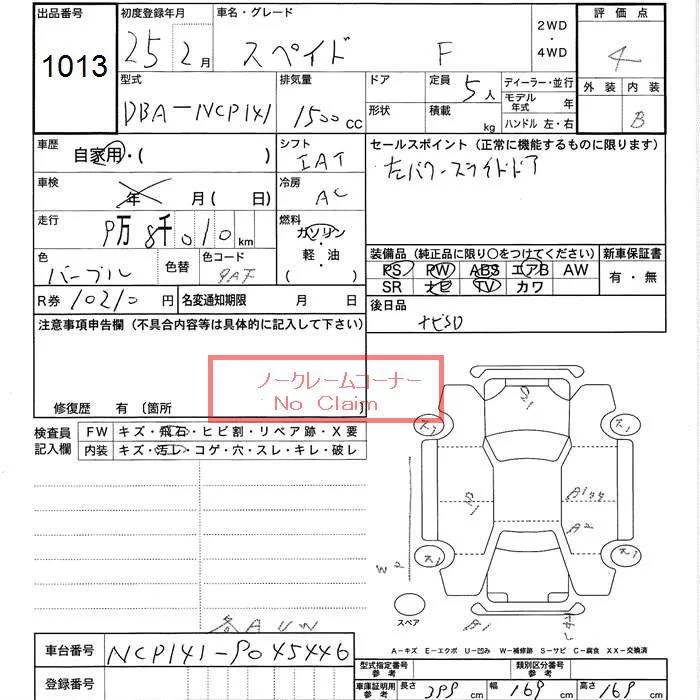 出品番号
1013
初度登録年月
25 2月
車名・グレード
スペイド F
2WD
・
4WD
評価点
4
外装 内装
B
型式
DBA-NCP141
排気量
1500cc
ドア
形状
定員
5人
積載
kg
ディーラー・並行
モデル年式 年
ハンドル 左・右
車歴
自家用・( )
シフト
IAT
セールスポイント (正常に機能するものに限ります)
左パワースライドドア
車検
年 月( 日)
冷房
AC
走行
9万 8千010km
燃料
ガソリン
・
軽・油
( )
色
パープル
色替
色コード
9AF
装備品 (純正品に限り〇をつけてください)
PS PW ABS エアB AW
SR ナビ TV カワ
新車保証書
有・無
R券 10210円
名変通知期限 月 日
後日品
ナビSD
注意事項申告欄 (不具合内容等は具体的に記入して下さい)
ノークレームコーナー
No Claim
修復歴 有 〔箇所 〕
検査員記入欄
FW キズ・飛石・ヒビ割・リペア跡・X要
内装 キズ・汚レ・コゲ・穴・スレ・キレ・破レ
ス1
A1
A2
W2
B1
スペア
各AUW
A-キズ E-エクボ U-凹み W-補修跡 S-サビ C-腐食 XX-交換済
車台番号
NCP141-9045446
登録番号
型式指定番号
参考
類別区分番号
参考
車庫証明用
参考
長さ 399 幅 169 高さ 169